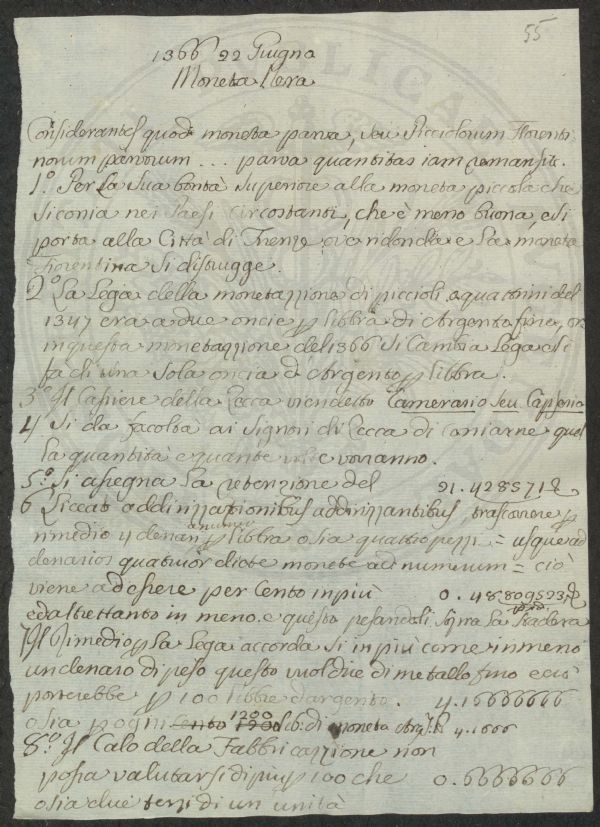 55
1366 22 Giugno
Moneta Nera
Considerantes quod moneta parva, seu Picciolorum Florenti
norum parvorum ... parva quantitas iam remansit.
1.º Per La sua bontà superiore alla moneta piccola che
si conia nei Paesi circostanti, che è meno buona, e si
porta alla Città di Firenze, ove ridonda e La moneta
Fiorentina si distrugge.
2.º La Lega della monetazzione di piccioli, o quattrini del
1347 era a due oncie p libbra di Argento fine, or
in questa monetazzione del 1366 si Cambia Lega e si
fa di una sola oncia d'Argento p libbra.
3.º Il Casiere della Zecca vien detto Camerario seu Capserio
4 Si da facoltà ai Signori di Zecca di coniarne quel
la quantità e quante volte voranno.
5.º Si assegna La retenzione del 21.428571
6 Liceat addirizzationibus addirizzantibus, trascorrere p
rimedio 4 denari a numero p libbra o sia quattro pezzi = usque ad
denarios quatuor dicte monete ad numerum = ciò
viene ad essere per Cento in più 0.48809523
ed altrettanto in meno. e questo pesandoli sopra La Stadera
7 Il Rimedio p La Lega accorda si in più come in meno
un denaro di peso questo vuol dire di metallo fino e ciò
porterebbe p 100 libbre d'argento. 4.16666666
o sia p ogni Cento 1200 Lib. di moneta 4.1666
8.º Il Calo della Fabbricazzione non
possa valutarsi di più p 100 che 0.6666666
o sia due terzi di un unità